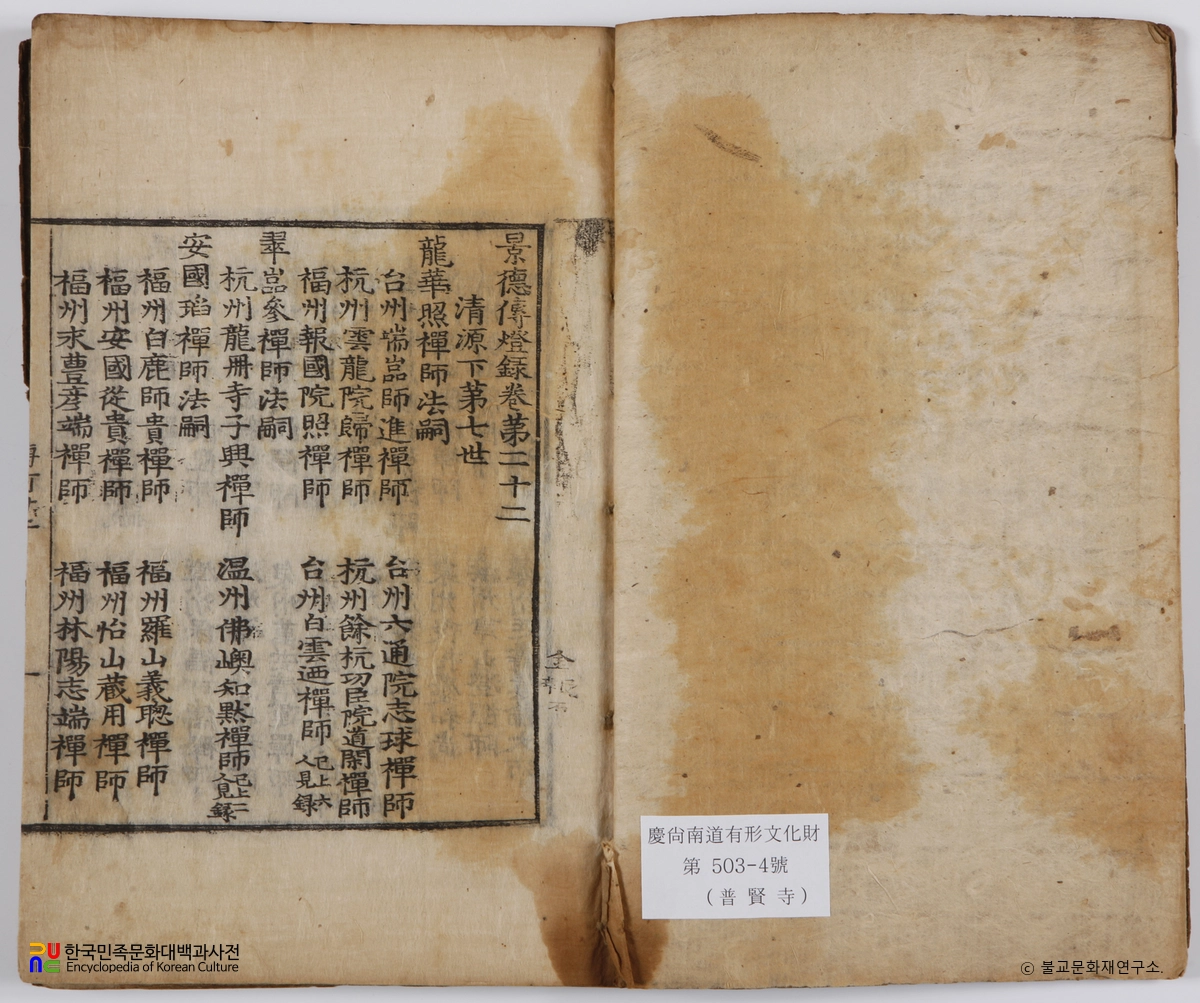 景德傳燈録卷第二十二
清源下第七世
龍華照禪師法嗣
台州瑞嵓師進禪師 台州六通院志球禪師
杭州雲龍院歸禪師 杭州餘杭功臣院道閑禪師
福州報國院照禪師 台州白雲廼禪師 已上六人見錄
翠嵓參禪師法嗣
杭州龍册寺子興禪師 温州佛嶴知默禪師 已上二人見錄
安國瑫禪師法嗣
福州白鹿師貴禪師 福州羅山義聰禪師
福州安國從貴禪師 福州怡山藏用禪師
福州永豊彦端禪師 福州林陽志端禪師
一
慶尙南道有形文化財
第 503-4號
(普賢寺)
한국민족문화대백과사전
Encyclopedia of Korean Culture
ⓒ 불교문화재연구소.